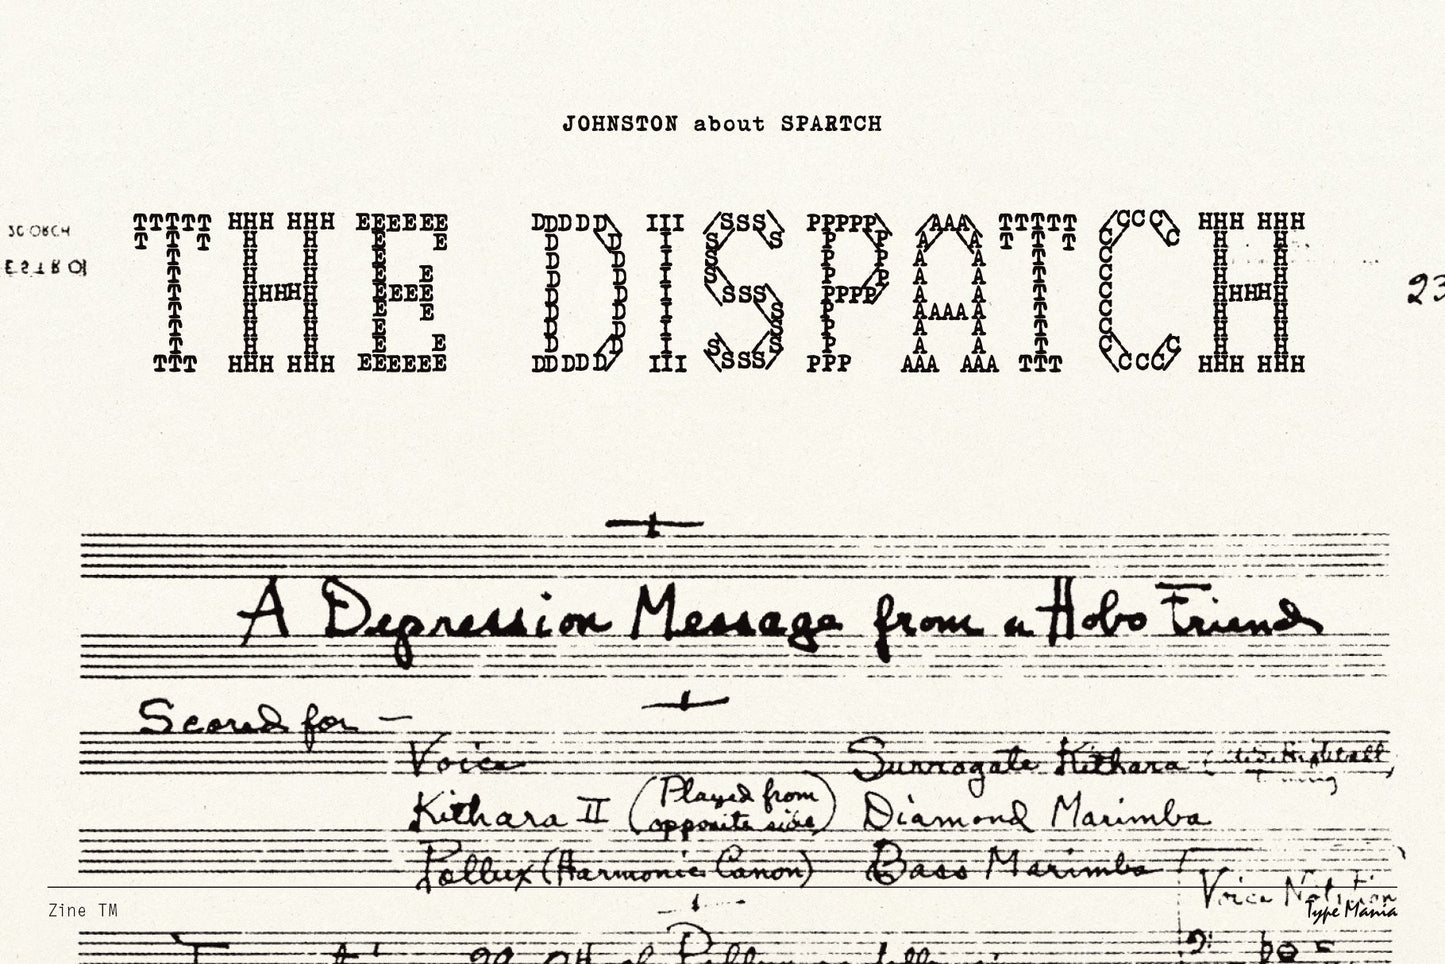 JOHNSTON about SPARTCH
THE DISPATCH
23
A Depression Message from a Hobo Friend
Scored for —
Voice
Surrogate Kithara
Kithara II (Played from opposite side)
Diamond Marimba
Pollux (Harmonic Canon)
Bass Marimba
Voice Notation
Zine TM
Type Mania